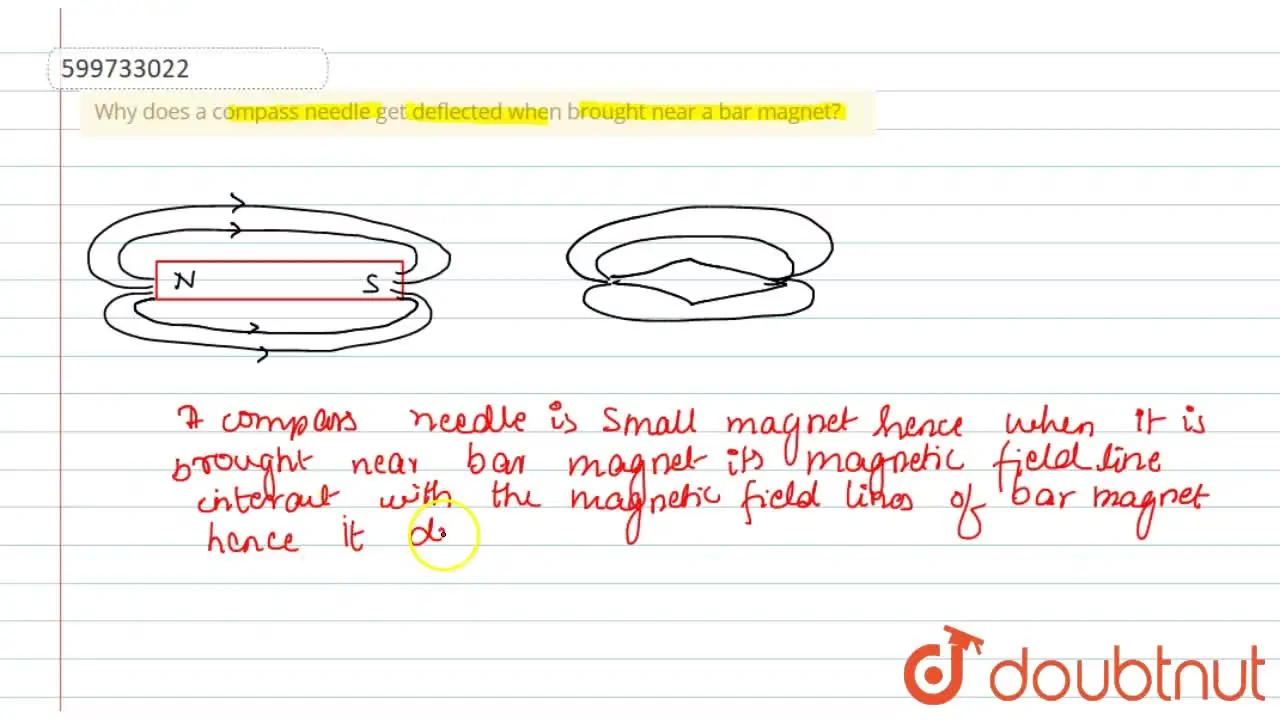 599733022
Why does a compass needle get deflected when brought near a bar magnet?
N S
A compass needle is small magnet hence when it is
brought near bar magnet its magnetic field line
interact with the magnetic field lines of bar magnet
hence it de
doubtnut